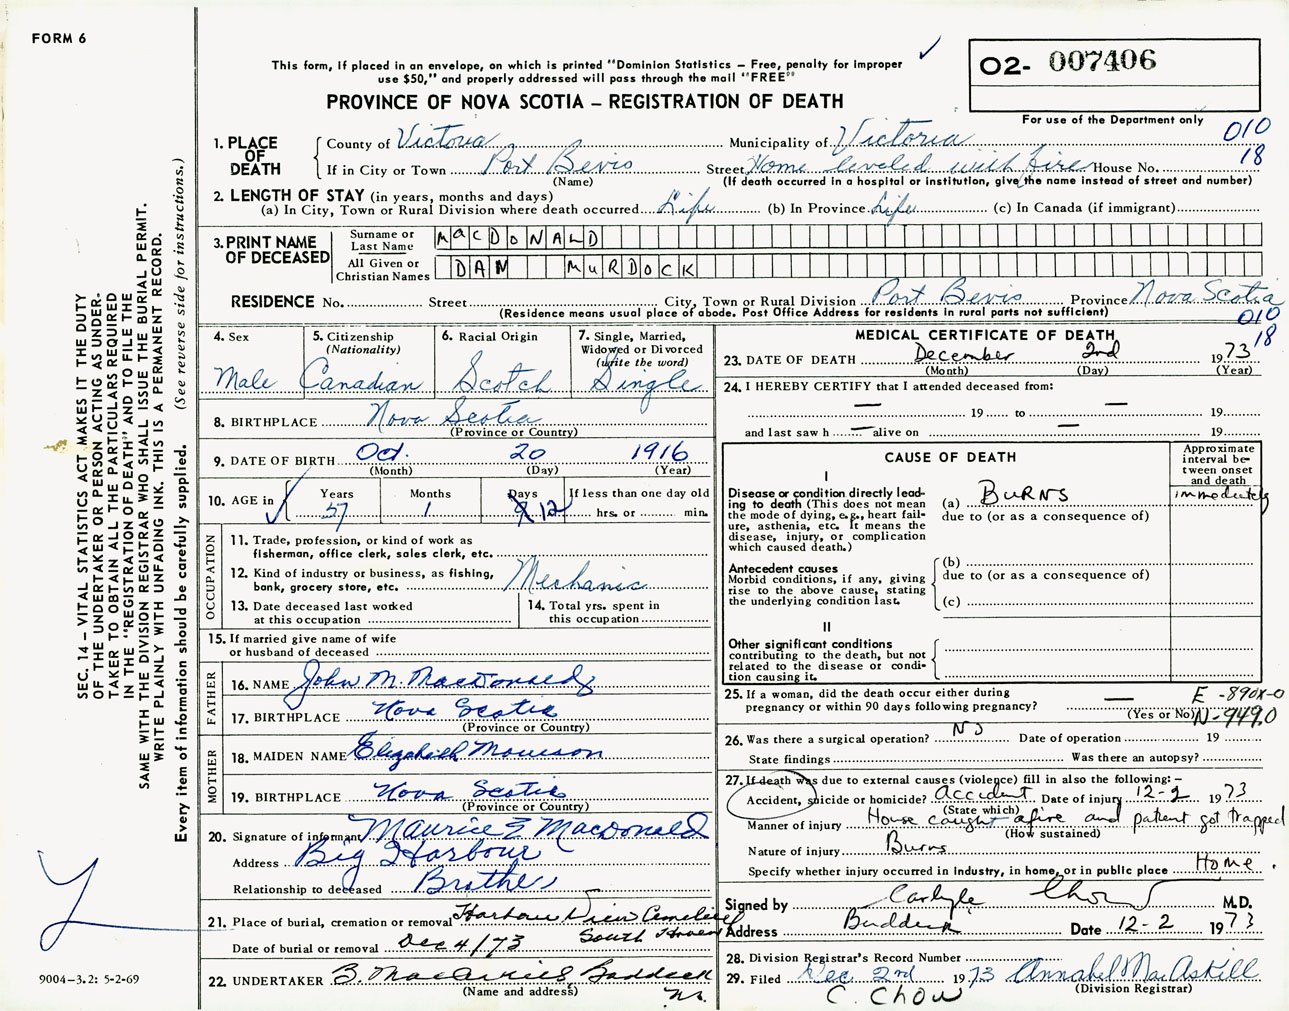 FORM 6
This form, if placed in an envelope, on which is printed "Dominion Statistics – Free, penalty for improper
use $50," and properly addressed will pass through the mail "FREE"
PROVINCE OF NOVA SCOTIA – REGISTRATION OF DEATH
O2- 007406
For use of the Department only
010
18
1. PLACE OF DEATH
County of Victoria Municipality of Victoria
If in City or Town Port Bevis Street Home leveled with fire House No.
(Name) (If death occurred in a hospital or institution, give the name instead of street and number)
2. LENGTH OF STAY (in years, months and days)
(a) In City, Town or Rural Division where death occurred Life (b) In Province Life (c) In Canada (if immigrant)
3. PRINT NAME OF DECEASED
Surname or Last Name MacDONALD
All Given or Christian Names DAN MURDOCK
RESIDENCE No. Street City, Town or Rural Division Port Bevis Province Nova Scotia
(Residence means usual place of abode. Post Office Address for residents in rural parts not sufficient)
010
18
4. Sex Male
5. Citizenship (Nationality) Canadian
6. Racial Origin Scotch
7. Single, Married, Widowed or Divorced (write the word) Single
8. BIRTHPLACE Nova Scotia
(Province or Country)
9. DATE OF BIRTH Oct. 20 1916
(Month) (Day) (Year)
10. AGE in Years 57 Months 1 Days 12 If less than one day old
hrs. or min.
OCCUPATION
11. Trade, profession, or kind of work as
fisherman, office clerk, sales clerk, etc.
12. Kind of industry or business, as fishing,
bank, grocery store, etc. Mechanic
13. Date deceased last worked
at this occupation
14. Total yrs. spent in
this occupation
15. If married give name of wife
or husband of deceased
FATHER
16. NAME John M. Macdonald
17. BIRTHPLACE Nova Scotia
(Province or Country)
MOTHER
18. MAIDEN NAME Elizabeth Morrison
19. BIRTHPLACE Nova Scotia
(Province or Country)
20. Signature of informant Maurice E Macdonald
Address Big Harbour
Relationship to deceased Brother
21. Place of burial, cremation or removal Harbour View Cemetery
South Haven
Date of burial or removal Dec 4/73
22. UNDERTAKER B. Baddeck
N.S.
(Name and address)
MEDICAL CERTIFICATE OF DEATH
23. DATE OF DEATH December 2nd 1973
(Month) (Day) (Year)
24. I HEREBY CERTIFY that I attended deceased from:
— 19 to — 19
and last saw h — alive on — 19
CAUSE OF DEATH
Approximate interval between onset and death
I
Disease or condition directly lead-
ing to death (This does not mean
the mode of dying, e.g., heart fail-
ure, asthenia, etc. It means the
disease, injury, or complication
which caused death.)
(a) BURNS immediately
due to (or as a consequence of)
Antecedent causes
Morbid conditions, if any, giving
rise to the above cause, stating
the underlying condition last.
(b)
due to (or as a consequence of)
(c)
II
Other significant conditions
contributing to the death, but not
related to the disease or condi-
tion causing it.
25. If a woman, did the death occur either during
pregnancy or within 90 days following pregnancy? —
(Yes or No)
E-890X-0
N-949.0
26. Was there a surgical operation? NO Date of operation 19
State findings Was there an autopsy?
27. If death was due to external causes (violence) fill in also the following:–
Accident, suicide or homicide? Accident Date of injury 12-2 1973
(State which)
Manner of injury House caught afire and patient got trapped
(How sustained)
Nature of injury Burns
Specify whether injury occurred in industry, in home, or in public place Home.
Signed by Carlyle Chow M.D.
Address Baddeck Date 12-2 1973
28. Division Registrar's Record Number
29. Filed Dec. 2nd 1973 Annabel MacAskill
(Division Registrar)
C. Chow
SEC. 14 – VITAL STATISTICS ACT MAKES IT THE DUTY
OF THE UNDERTAKER OR PERSON ACTING AS UNDER-
TAKER TO OBTAIN ALL THE PARTICULARS REQUIRED
IN THE "REGISTRATION OF DEATH" AND TO FILE THE
SAME WITH THE DIVISION REGISTRAR WHO SHALL ISSUE THE BURIAL PERMIT.
WRITE PLAINLY WITH UNFADING INK. THIS IS A PERMANENT RECORD.
Every item of information should be carefully supplied. (See reverse side for instructions.)
9004-3.2: 5-2-69